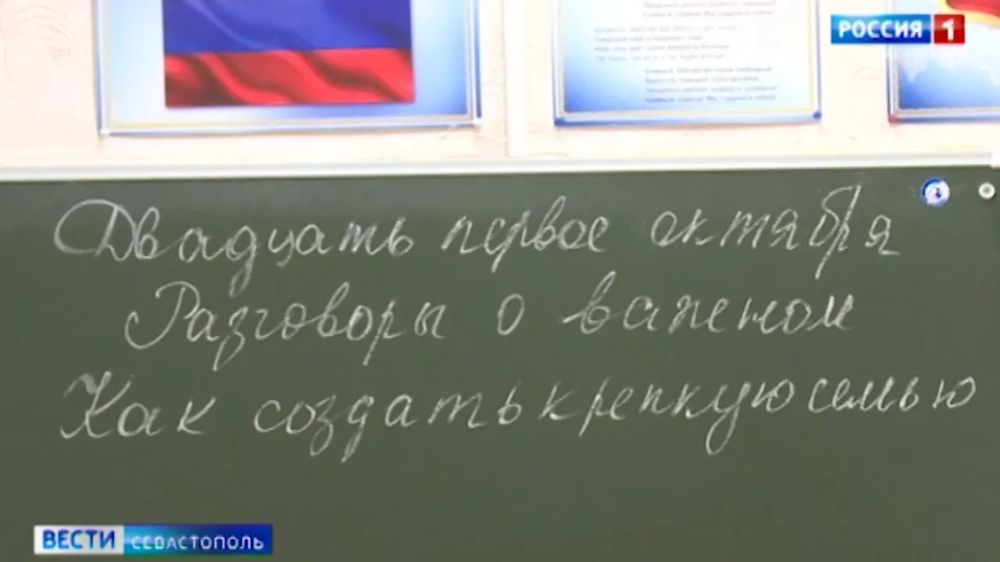 РОССИЯ 1
Двадцать первое октября
Разговоры о важном
Как создать крепкую семью
ВЕСТИ СЕВАСТОПОЛЬ